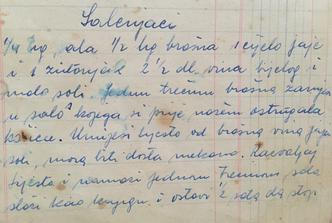 Salenjaci
1/4 kg sala 1/2 kg brašna 1 cijelo jaje
i 1 žutanjak 2 1/2 dl vina bijelog i
malo soli. Jednu trećinu brašna
u salo kojega si prije nožem ostrugala
kožice. Umijesi tijesto od brašna vina jaja
soli, mora biti dosta mekano. Razvaljaj
tijesto i namaži jednom trećinom sala
složi kao knjigu i ostavi 1/2 sata da stoji